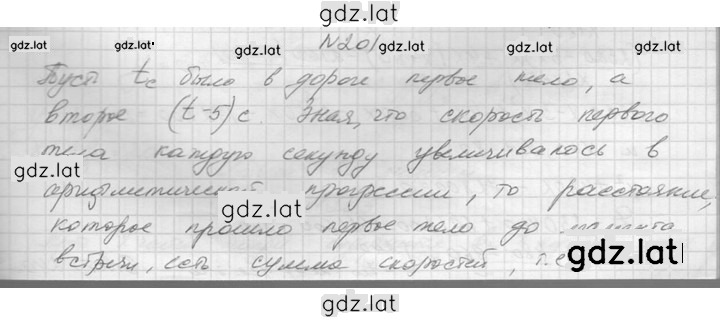 gdz.lat
gdz.lat
gdz.lat
gdz.lat
№201
gdz.lat
Пусть t с было в дороге первое тело, а
второе (t-5) с. Зная, что скорость первого
тела каждую секунду увеличивалось в
gdz.lat
арифметической прогрессии, то расстояние,
gdz.lat
которое прошло первое тело до момента
встречи, есть сумма скоростей, т.е
gdz.lat
gdz.lat